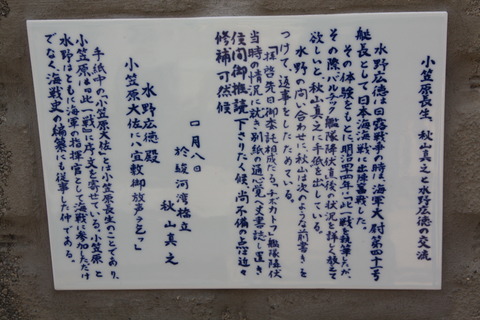 小笠原長生、秋山真之と水野広徳の交流
水野広徳は日露戦争の時は海軍大尉第四十一号
艇長として日本海海戦に出陣奮戦した。
その体験をもとに、明治四十四年「此一戦」を執筆したが、
その際、バルチック艦隊降伏直後の状況を詳しく教えて
欲しいと、秋山真之に手紙を出している。
水野の問い合わせに、秋山は次のような前書きを
つけて、返事をしたためている。
「拝啓先日御委托相成たる、ネボガトーフ艦隊降伏
当時の情況に就き別紙の通心覚へ丈書誌し置き
候間御推読下さりたく候、尚不備の点は追々
修補可然候
四月八日
於駿河湾橋立
秋山真之
水野広徳殿
小笠原大佐にハ宜敷御放声を乞ふ」
手紙中の「小笠原大佐」とは小笠原長生のことであり、
小笠原は「此一戦」に序文を寄せている。小笠原と
水野はともに海軍の指揮官として海戦に参加しただけ
でなく海戦史の編纂にも従事した仲である。